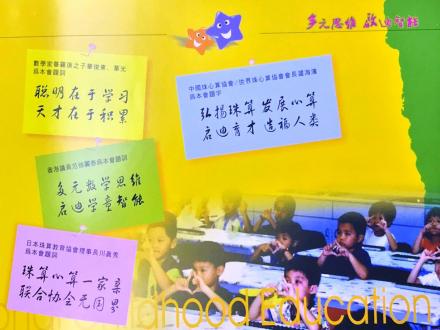 多元思維 啟迪智能
數學家華羅庚之子華俊東、華光
為本會題詞
聪明在于学习
天才在于积累
中國珠心算協會/世界珠心算協會會長遲海濱
為本會題字
弘揚珠算发展心算
启迪育才造福人类
為本會題詞
多元数学思维
启迪学童智能
日本珠算教育協會理事長川真秀
為本會題詞
珠算心算一家亲
联合协会无国界
hood Education